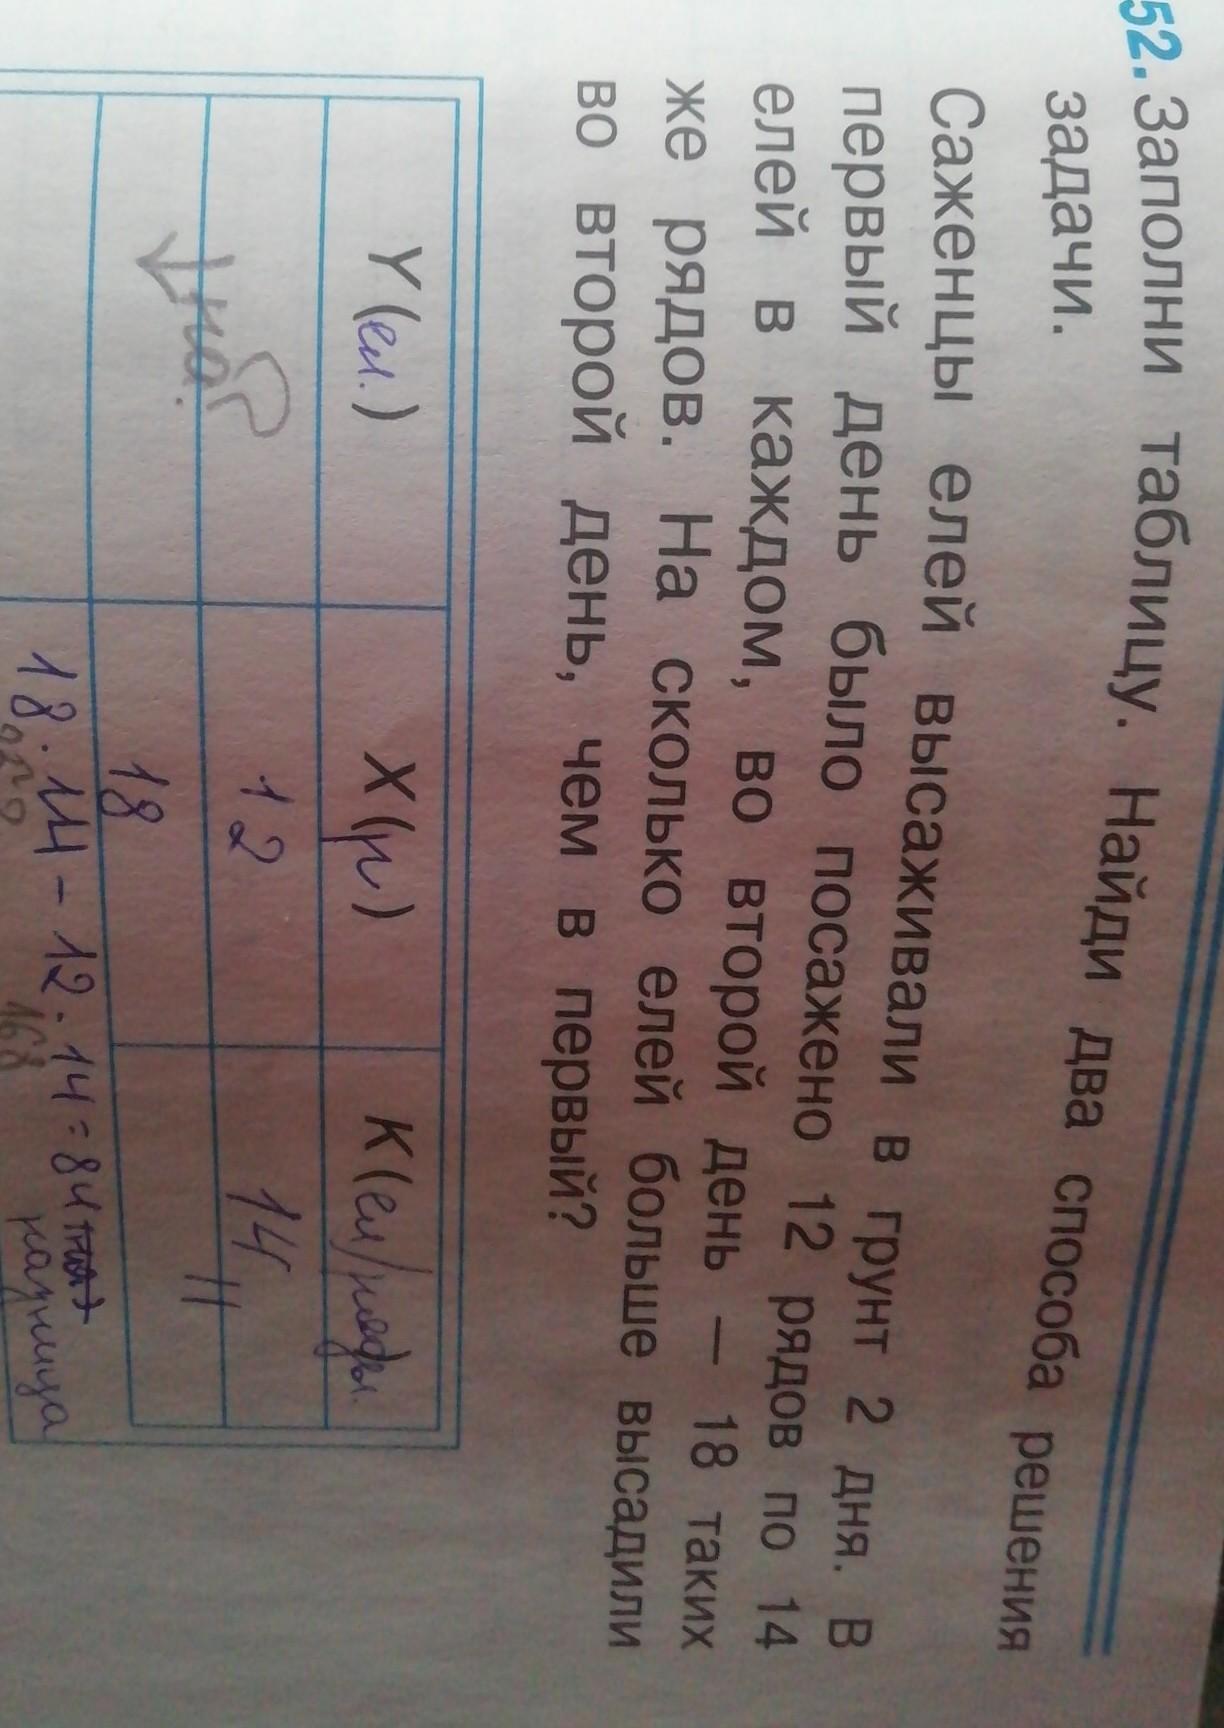 52. Заполни таблицу. Найди два способа решения
задачи.
Саженцы елей высаживали в грунт 2 дня. В
первый день было посажено 12 рядов по 14
елей в каждом, во второй день — 18 таких
же рядов. На сколько елей больше высадили
во второй день, чем в первый?
Y (ел.) X (р) К (ел/ряды.
? 12 14
на 18 11
18 · 14 - 12 · 14 = 84
252 168 разница